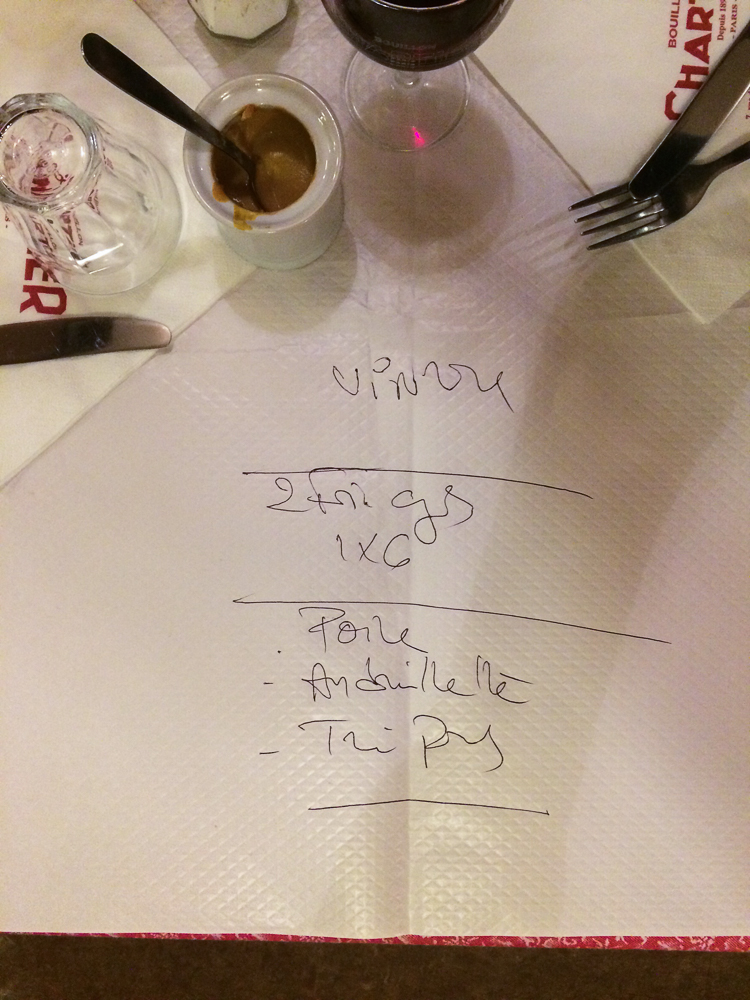 BOUILL
CHART
Depuis 189
- PARIS -
TIER
2 Foie gs
1X6
Poire
- Andouillette
- Tripes